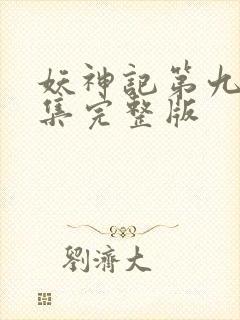 妖神記第九
集完整版
劉濟大